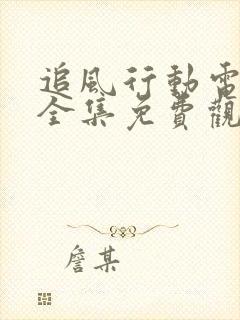 追風行動電
全集免費觀
詹某